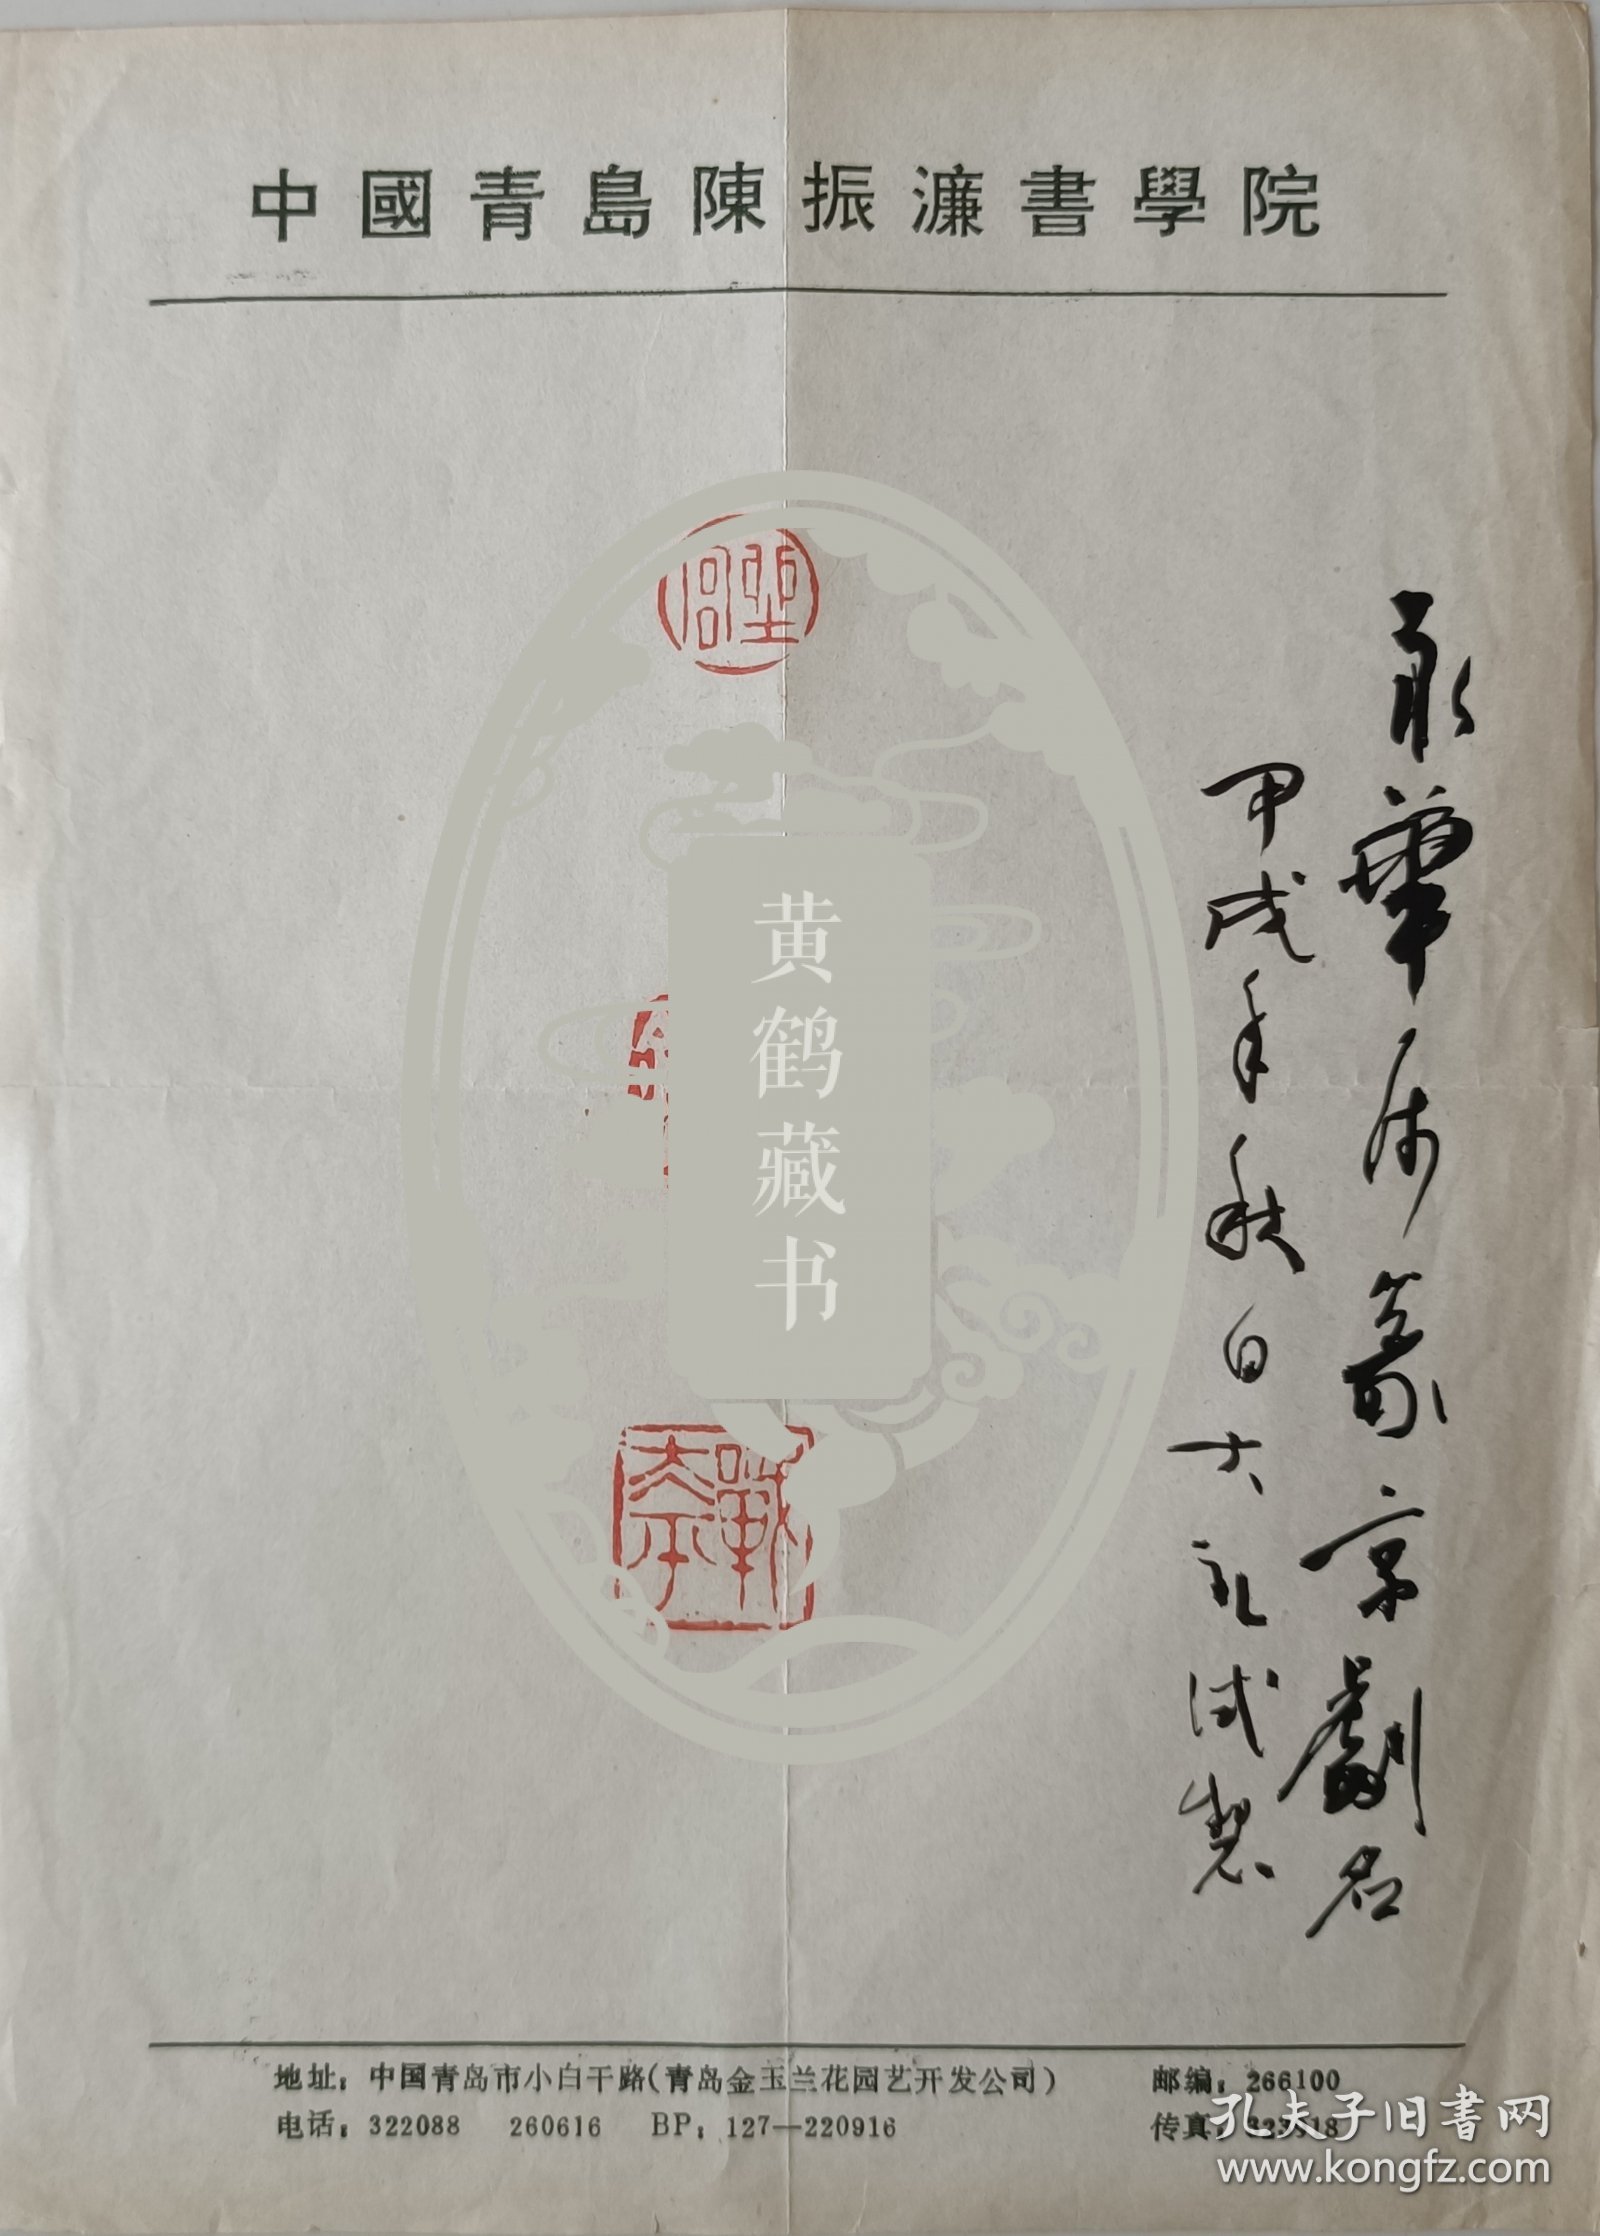 中國青島陳振濂書學院
永華属篆京劇名
甲戌年秋白大礼試製
黄鹤藏书
地址：中国青岛市小白干路（青岛金玉兰花园艺开发公司） 邮编：266100
电话：322088 260616 BP：127—220916 传真：
孔夫子旧書网
www.kongfz.com